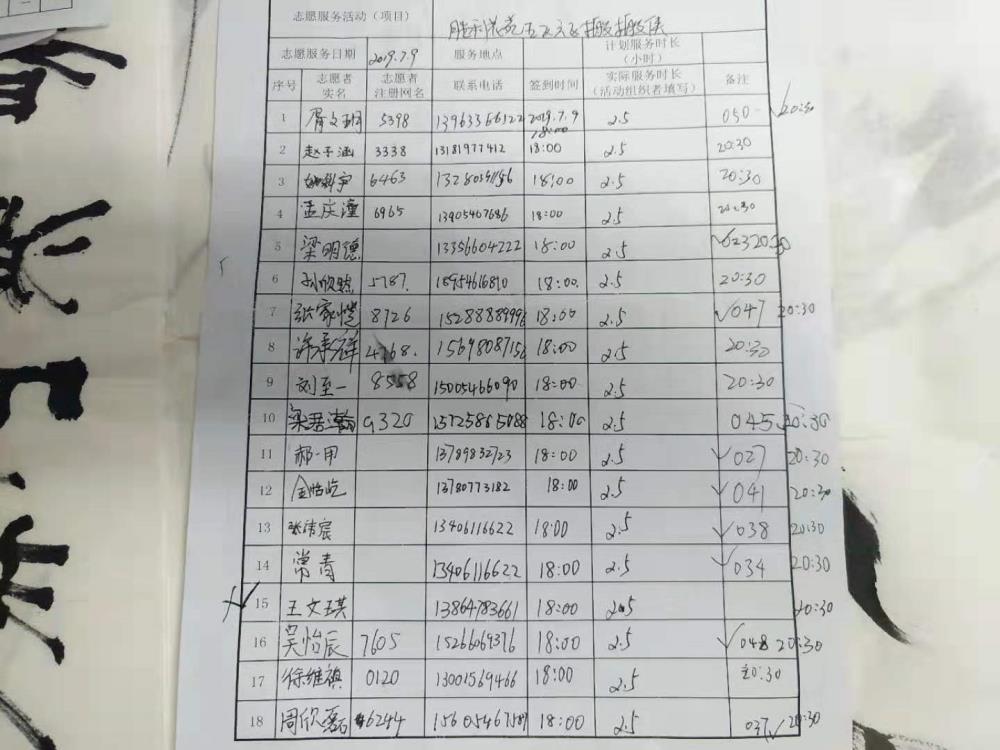 志愿服务活动（项目）
志愿服务日期 2019.7.9 服务地点 计划服务时长（小时）
序号 志愿者实名 志愿者注册网名 联系电话 签到时间 实际服务时长（活动组织者填写） 备注
1 胥文珊 5398 13963356122 2019.7.9 18:00 2.5 050 20:30
2 赵子涵 3338 13181977412 18:00 2.5 20:30
3 6463 18:00 2.5 20:30
4 孟庆潼 6965 13905467686 18:00 2.5 20:30
5 梁明德 13356604222 18:00 2.5 023 20:30
6 5787. 18954616810 18:00. 2.5 20:30
7 张家恺 8726 15288889996 18:00 2.5 √047 20:30
8 许承祥 4768. 15698087156 18:00 2.5 20:30
9 刘至一 8558 15005466090 18:00 2.5 20:30
10 梁君瀚 9320 18:00 2.5 045 20:30
11 郝一甲 13789832723 18:00 2.5 √027 20:30
12 金恬屹 13780773182 18:00 2.5 √041 20:30
13 张倩宸 13406116622 18:00 2.5 √038 20:30
14 常青 13406116622 18:00 2.5 √034 20:30
15 王文琪 13864783661 18:00 2.5 20:30
16 吴怡辰 7605 15266069376 18:00 2.5 √048 20:30
17 徐维祺 0120 13001569466 18:00 2.5 20:30
18 周欣磊 6244 15605467587 18:00 2.5 037√ 20:30